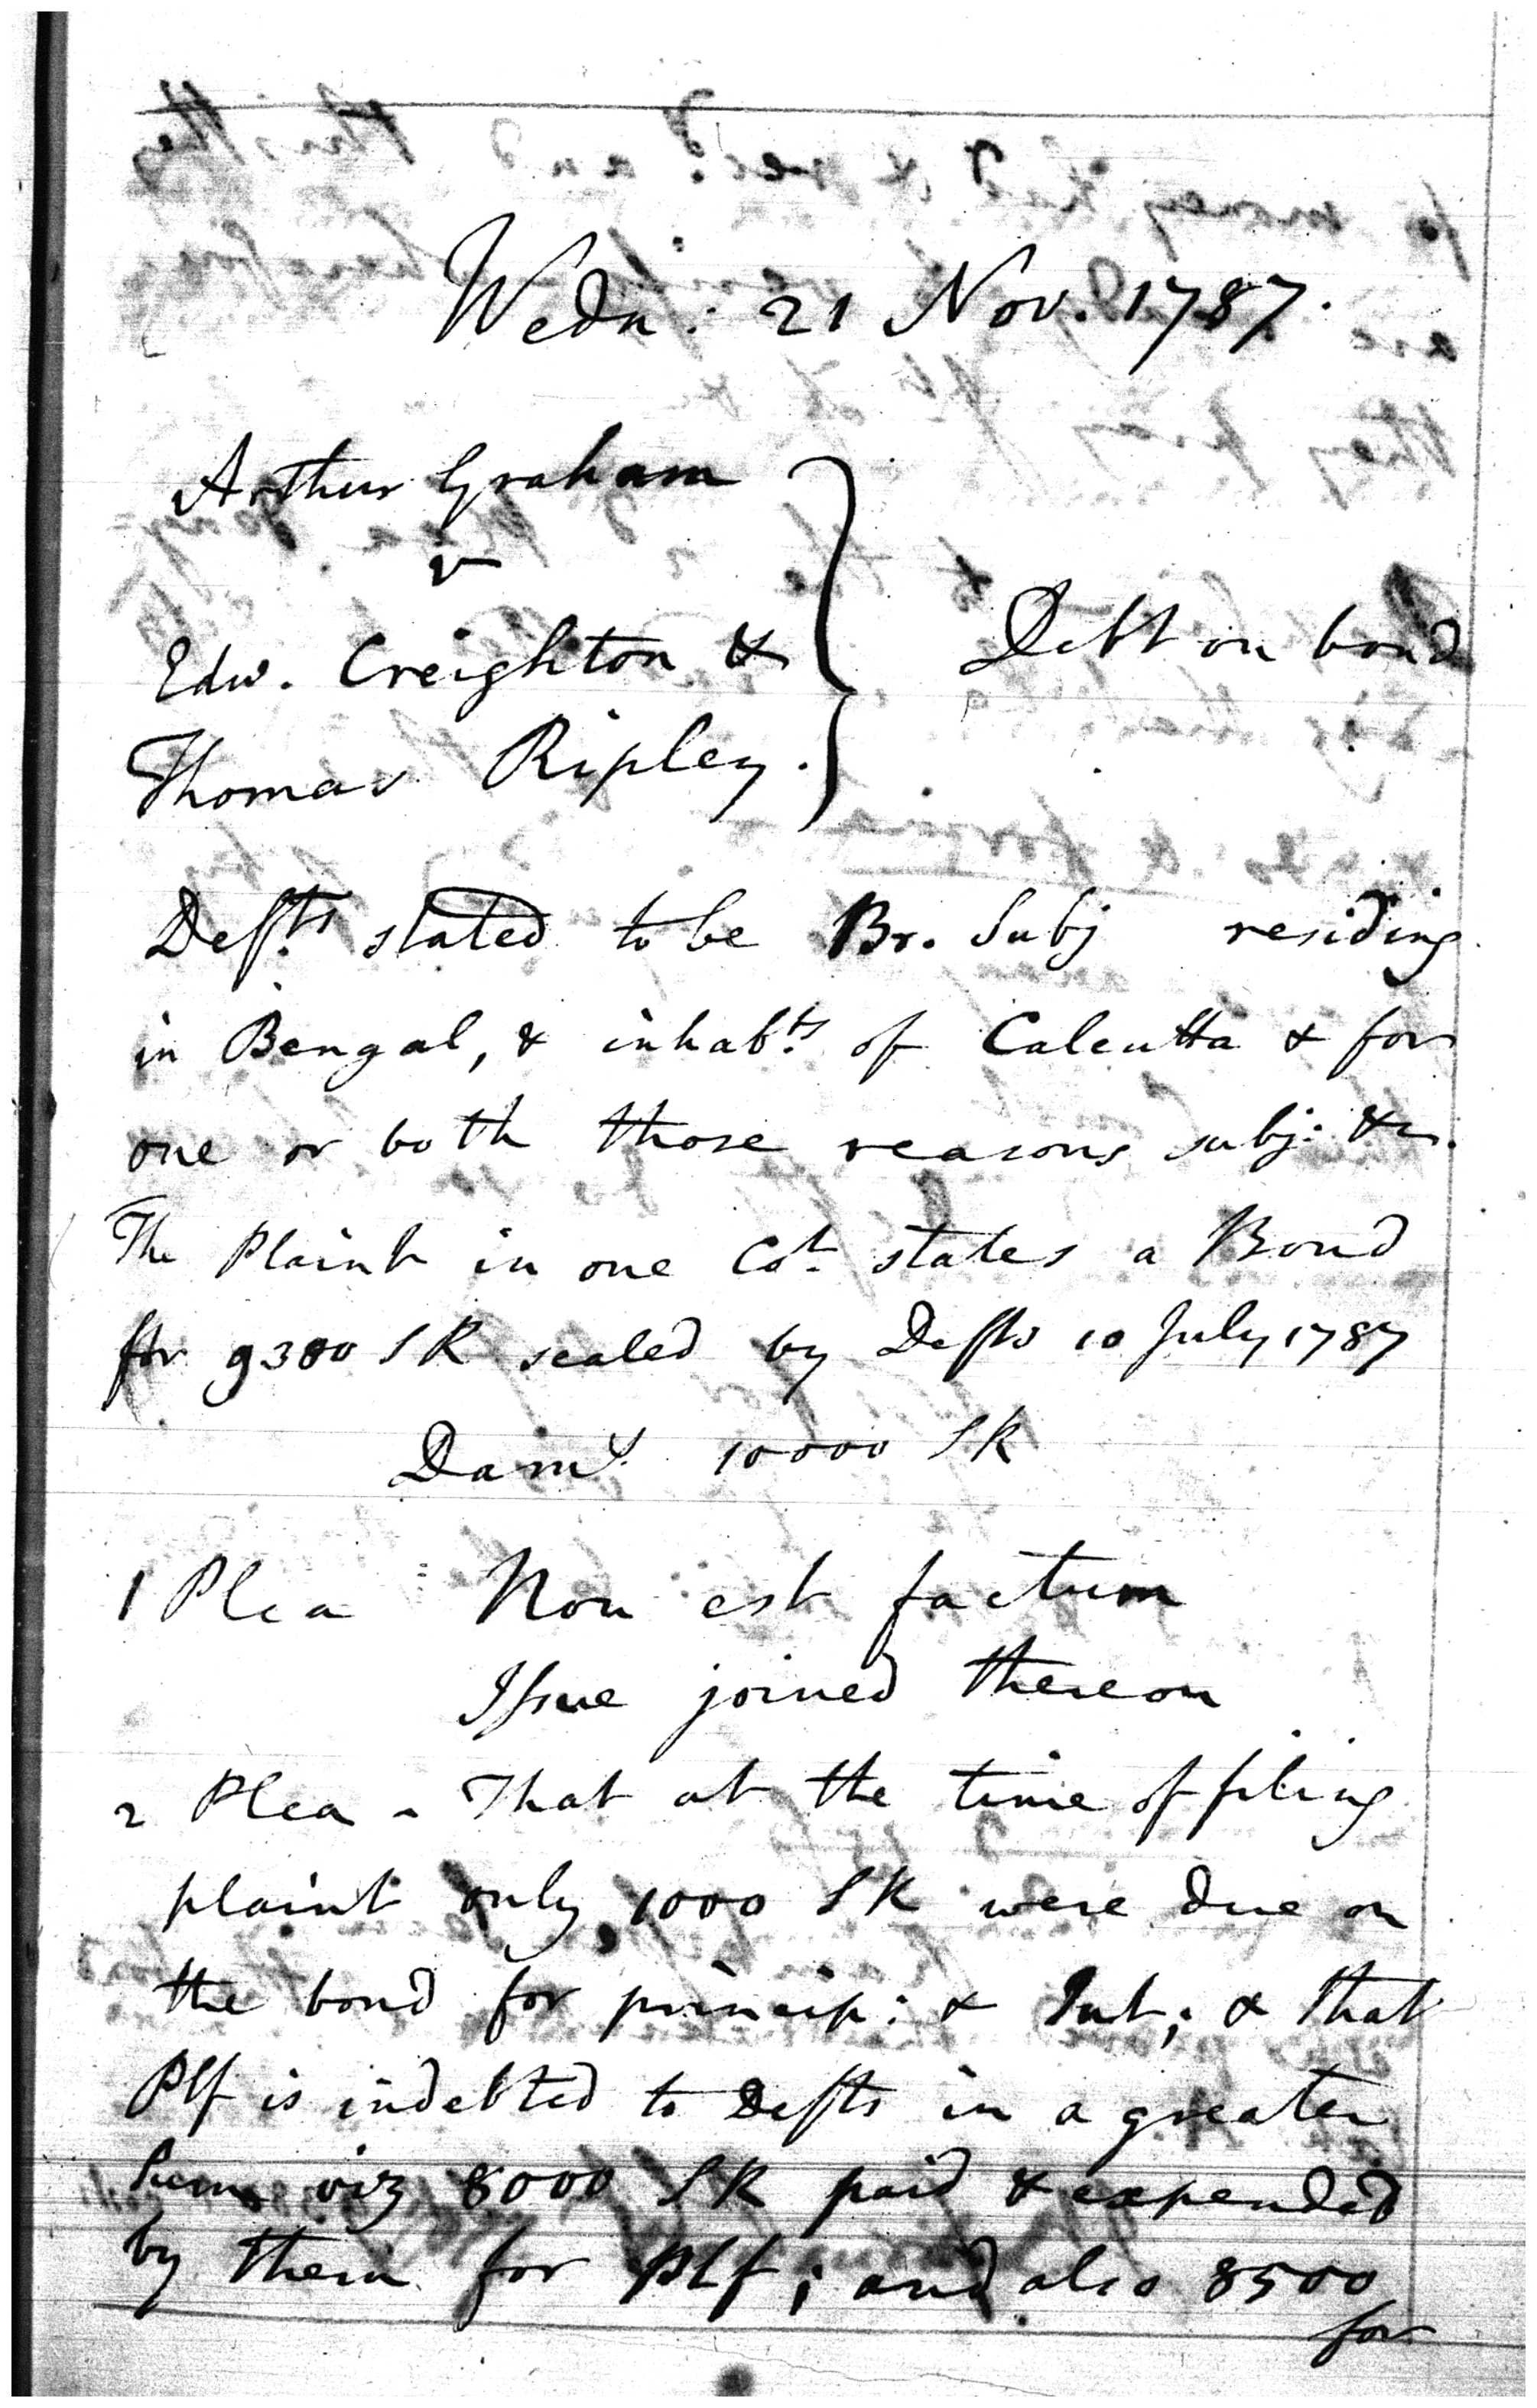 Wedn: 21 Nov. 1787.
Arthur Graham
v
Edw. Creighton &
Thomas Ripley.
Debt on bond
Defts stated to be Br. Subj residing
in Bengal, & inhabts of Calcutta & for
one or both those reasons subj: &c.
The Plaint in one Ct. states a Bond
for 9380 SR sealed by Defts 10 July 1787
Dams. 10000 SR
1 Plea Non est factum
Issue joined thereon
2 Plea - That at the time of filing
plaint only 1000 SR were due on
the bond for princip: & Int; & that
Plf is indebted to Defts in a greater
Sum viz 8000 SR paid & expended
by them for Plf; and also 8500
for